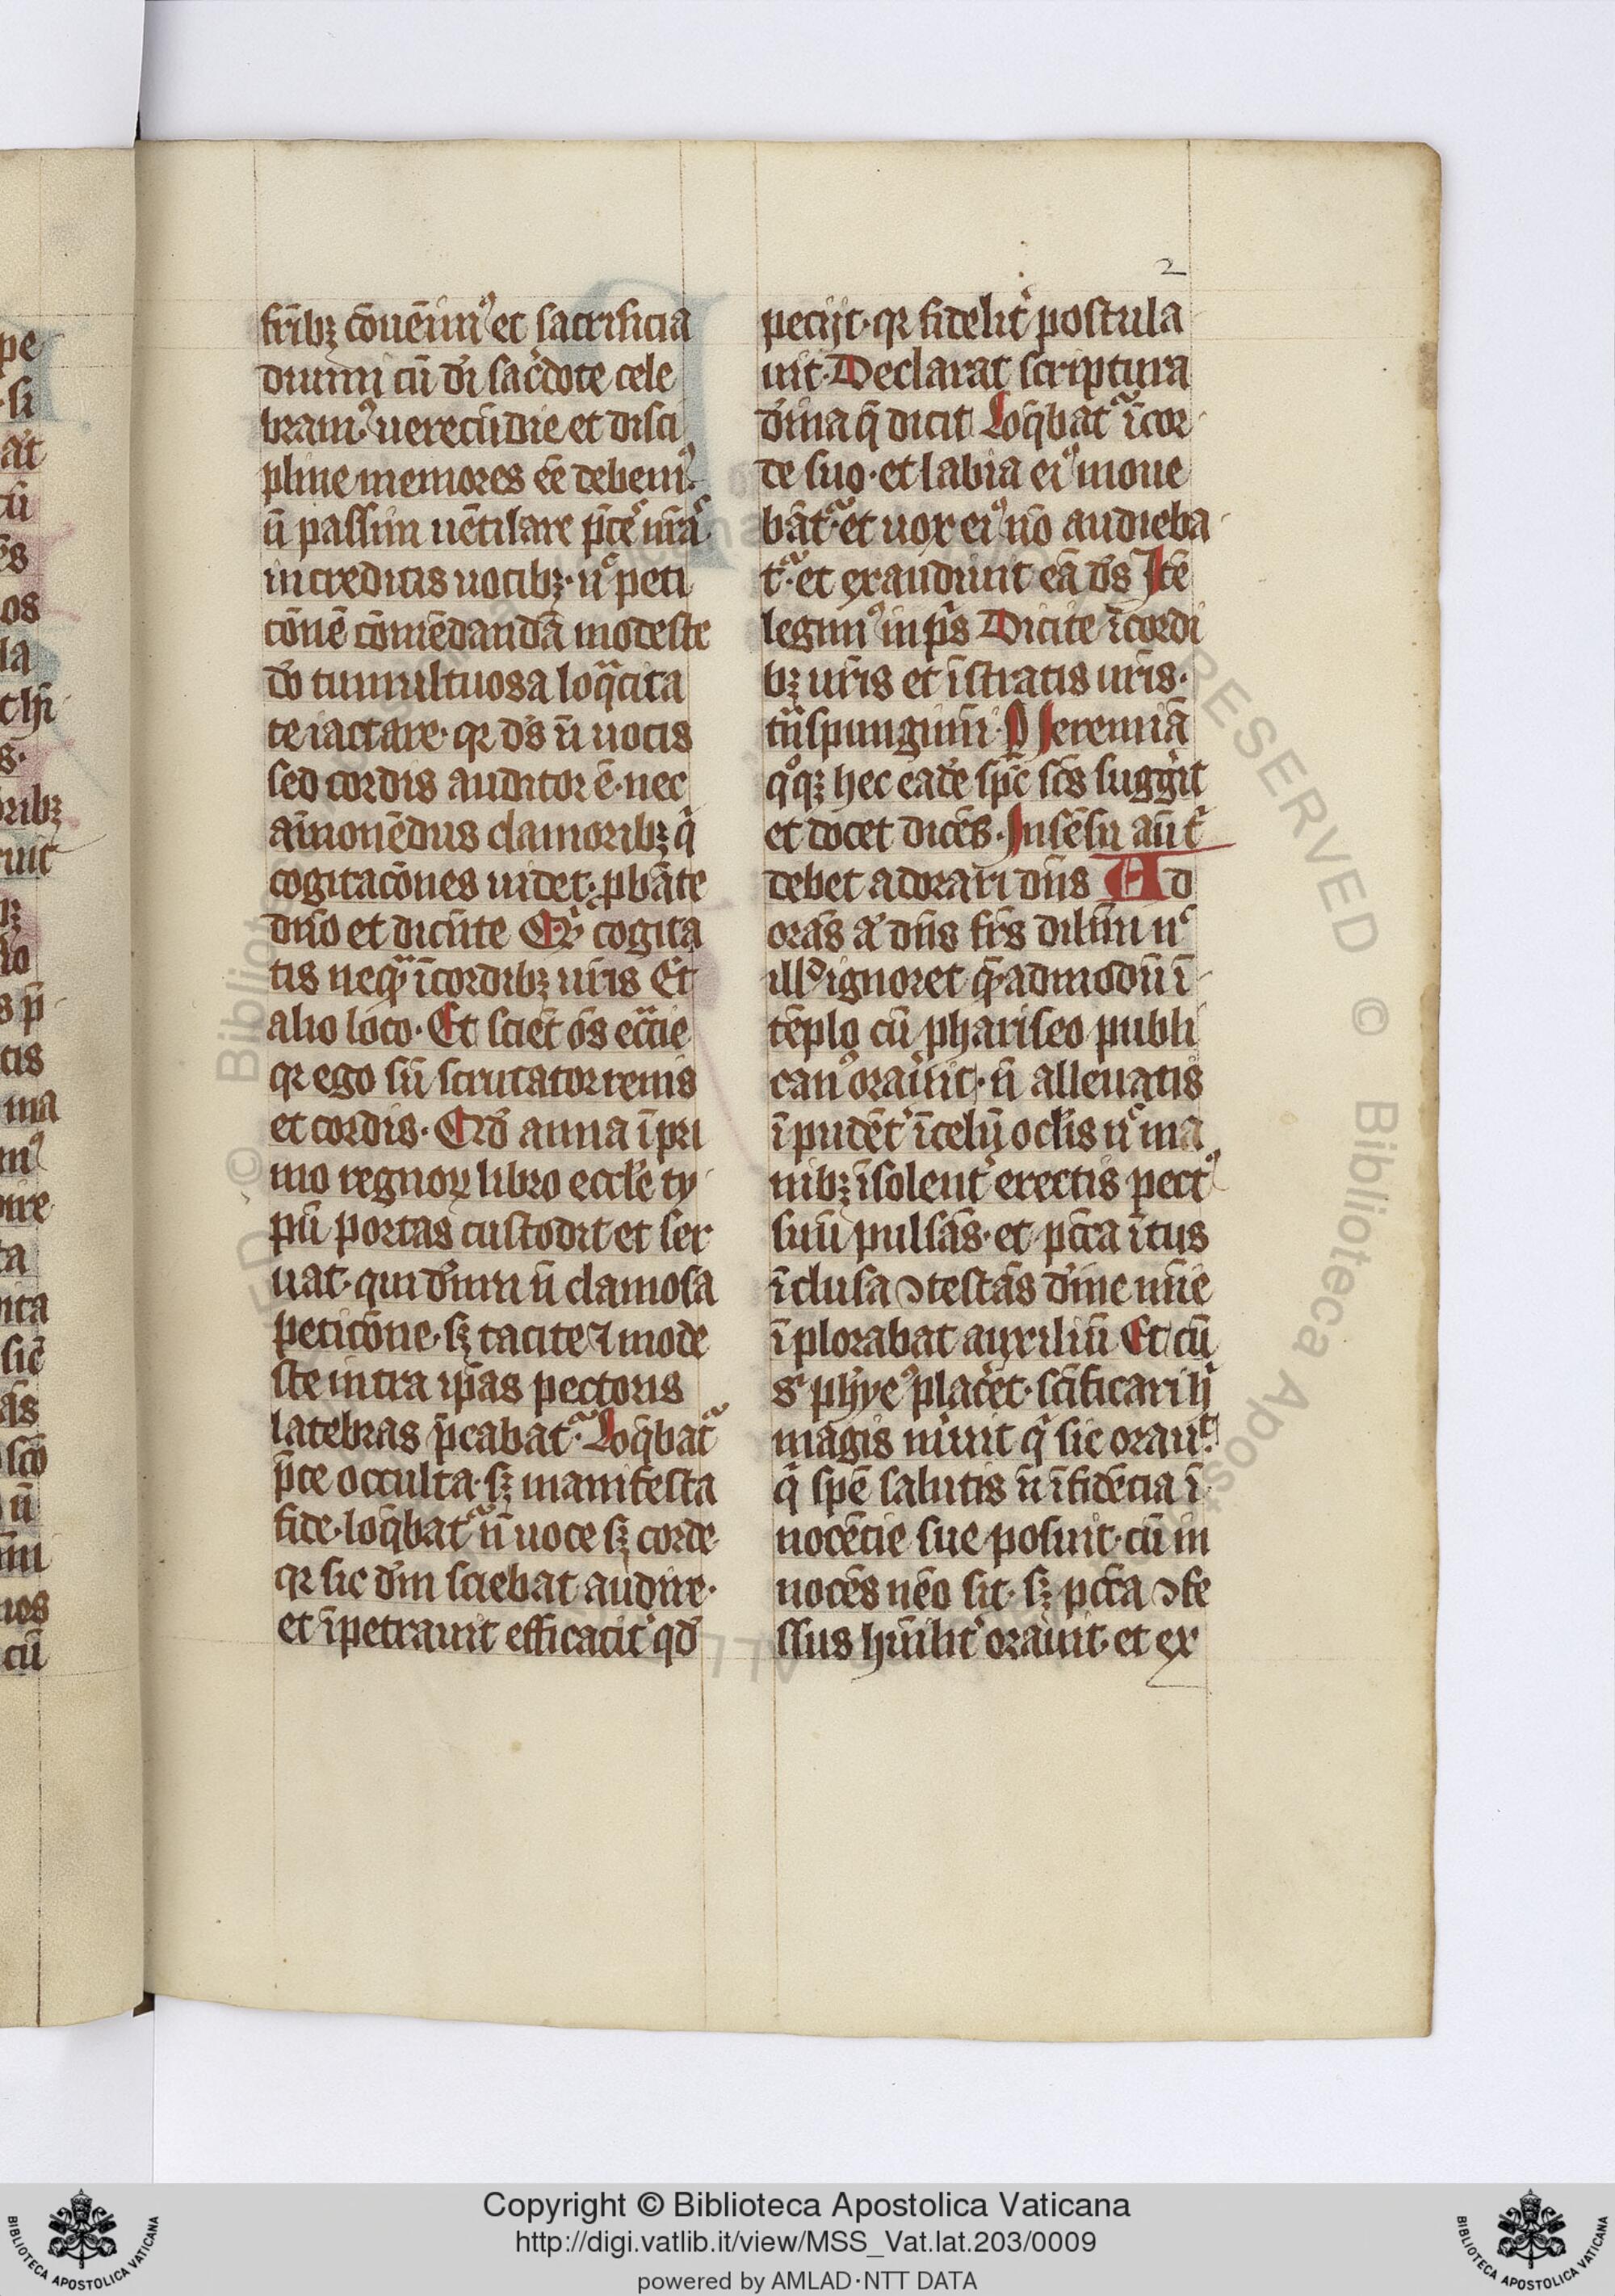 2
fr̄ibꝫ cōuēimꝰ et sacrificia
diuini cū dī sac̓dote cele
bramꝰ uerecūdie et disci
pline memores ēe debemꝰ
n̄ passim uētilare p̄ces nr̄as
increditis uocibꝫ· nͨ peti
cōnē cōmēdandā modeste
dō tumultuosa loq̈cita
te iactare· qꝛ dꝰs n̄ uocis
sed cordis auditor ē· nec
āmonēdus clamoribꝫ q̇
cogitacōnes uidet· ꝓbāte
dn̄o et dicēte Qͥd cogita
tis neq̄ ī cordibꝫ ur̄is Et
alio loco· Et sciēt ōs ecc̄ie
qꝛ ego sū scrutator renis
et cordis· Qd̓ anna ī pri
mo regnoꝝ libro eccl̄e ty
pū portas custodit et ser
uat· qui dn̄m n̄ clamosa
peticōne· sꝫ tacite ⁊ mode
ste intra ip̄as pectoris
latebras p̄cabat᷑· Loq̄bat᷑
p̄ce occulta· sꝫ manifesta
fide· loq̄bat᷑ n̄ uoce sꝫ corde
qꝛ sic dn̄m sciebat audire·
et īpetrauit efficacit̓ qd̓
pecijt· qꝛ fidelit̓ postula
uit· Declarat scriptura
diuīa q̄ dicit Loq̄bat᷑ ī cor
de suo· et labia eiꝰ moue
bāt᷑· et uox eiꝰ nō audieba
t᷑· et exaudiuit eā dꝰs Itē
legimꝰ in ps̄ Dicite ī cordi
bꝫ ur̄is et ī stratis ur̄is·
tn̄spungimī· P Ieremiā
qͦqꝫ hec eadē sp̄c sc̄s sugg̓it
et docet dicēs· In sēsu aūt̓
debet adorari dn̄s Ad
orās aͭ dn̄s fr̄s dilīmi nͨ
illᵈ ignoret q̄admodū ī
tēplo cū phariseo publi
canꝰ orauit· n̄ alleuatis
ī pudēt̓ ī celū oclīs nͨ ma
nibꝫ īsolent̓ erectis pectꝰ
suū pulsās· et pc̄ca ītus
īclusa ↄtestās diuīe mīe
īplorabat auxiliū Et cū
sͥ phyeꝰ plac̓et· scīficari hͥ
magis m̓uit qͥ sic orauͭ·
qͥ spē salutis n̄ ī fidēcia ī
nocēcie sue posuit· cū in
nocēs nēo sit· sꝫ pc̄ca ↄfe
ssus hūilit̓ orauit· et ex
Copyright © Biblioteca Apostolica Vaticana
http://digi.vatlib.it/view/MSS_Vat.lat.203/0009
powered by AMLAD·NTT DATA
BIBLIOTECA APOSTOLICA VATICANA
BIBLIOTECA APOSTOLICA VATICANA